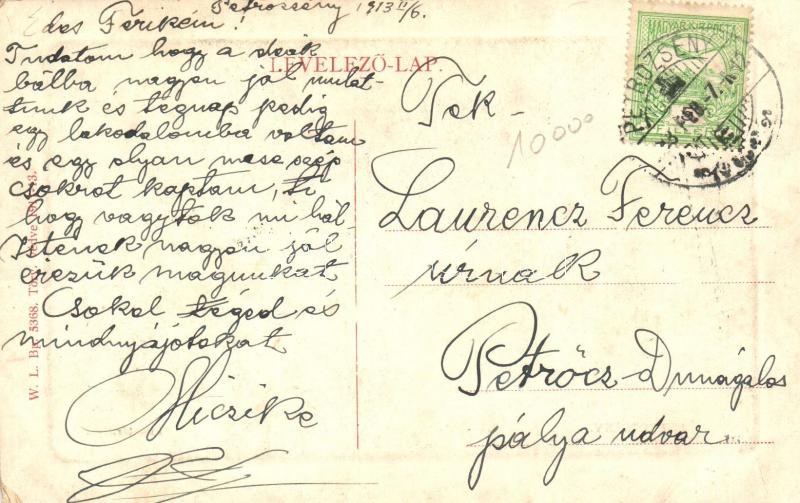 Petrosény 1913 II/6.
Édes Ferikém!
Tudatom hogy a deák
bálba nagyon jól mulat-
tunk és tegnap pedig
egy lakodalomba voltam
és egy olyan mese szép
csokrot kaptam, Ti
hogy vagytok mi hál
Istenek nagyon jól
érezük magunkat
Csokol téged és
mindnyájótokat
Miczike
LEVELEZŐ-LAP.
MAGYAR KIR. POSTA
PETROZSÉNY
10000
Tek.
Laurencz Ferencz
úrnak
Petrőcz-Dunagálos
pálya udvar
W. L. Bp. 5368.